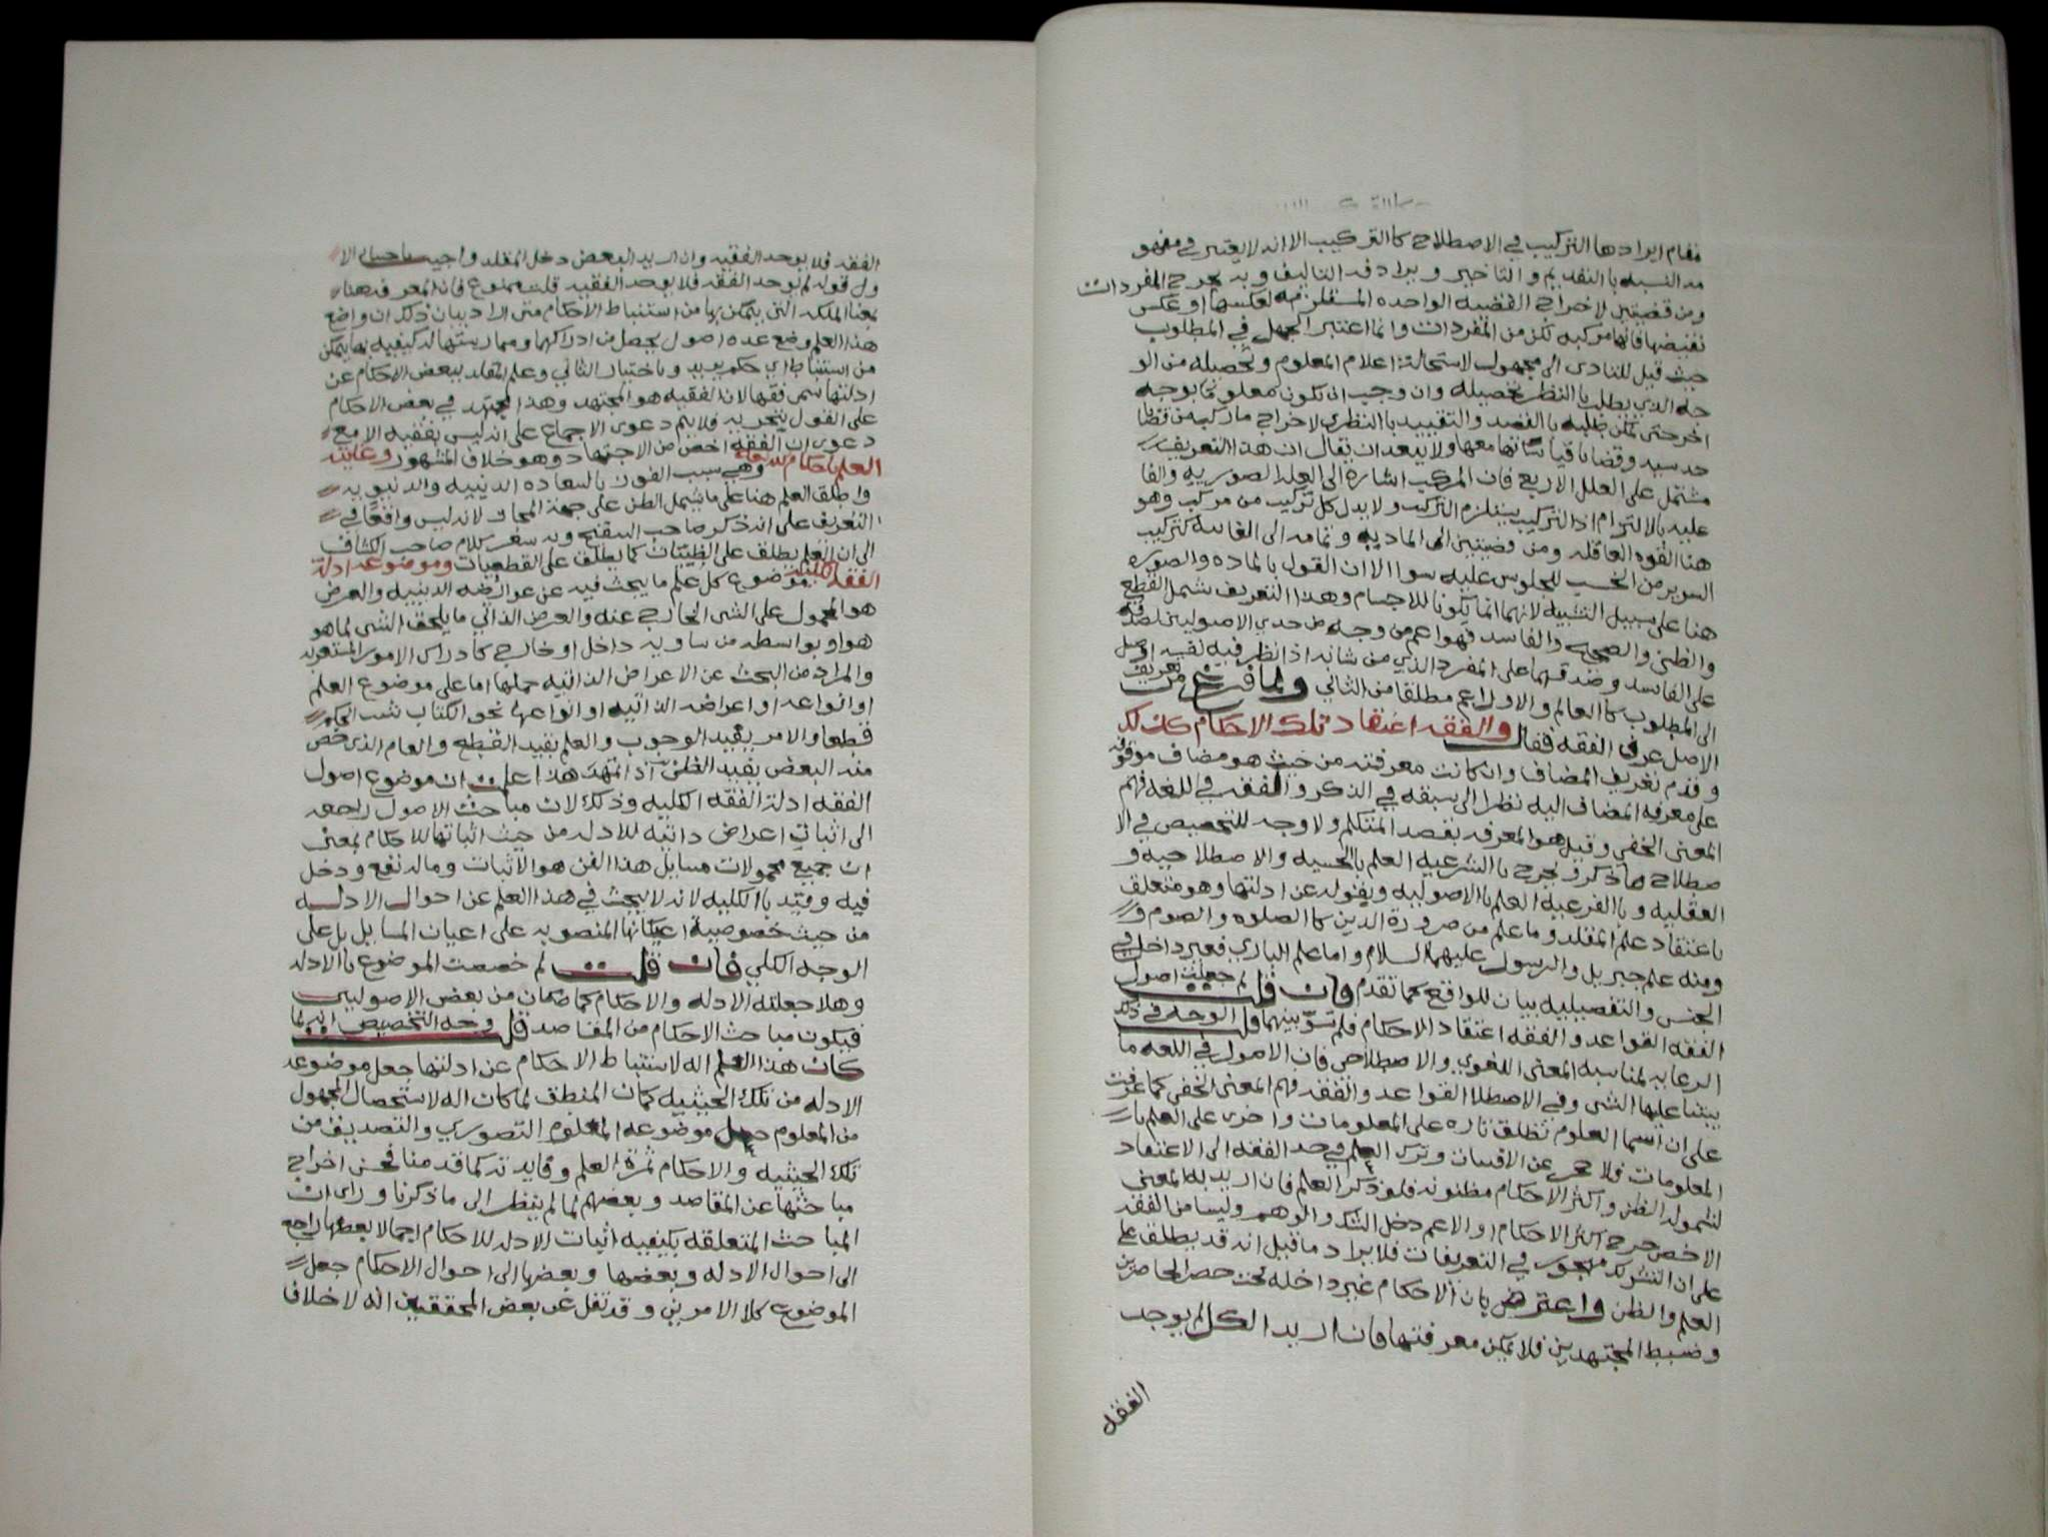 مقام ايرادها التركيب في الاصطلاح كالتركيب الا انه لا يعتبر في مفهو
مه النسبه بالتقديم والتاخير ويرادفه التاليف وبه يخرج المفردات
ومن قضيتين لاخراج القضيه الواحده المستلزمه لعكسها او عكس
نقيضها فانها مركبه لكن من المفردات وانما اعتبر الجهل في المطلوب
حيث قيل للتادى الى مجهول لاستحالة اعلام المعلوم وتحصيله من الو
جه الذي يطلب بالنظر تحصيله وان وجب ان تكون معلوما بوجه
اخر حتى تمكن طلبه بالقصد والتقييد بالنظري لاخراج ما ركب من قضايا
حدسيه وقضايا قياساتها معها ولا يبعد ان يقال ان هذا التعريف
مشتمل على العلل الاربع فان المركب اشارة الى العله الصوريه والفا
عليه بالالتزام اذ التركيب يستلزم التركب ولا بد لكل تركيب من مركب وهو
هنا القوه العاقله ومن قضيتين الى الماديه وتمامه الى الغاية كتركيب
السرير من الخشب للجلوس عليه سوا الا ان القول بالماده والصوره
هنا على سبيل التشبيه لانهما انما يكونا للاجسام وهذا التعريف شمل القطع
والظني والصحيح والفاسد فهو اعم من وجه من حدي الاصوليين لصدقه
على الفاسد وصدقهما على المفرد الذي من شانه اذا نظر فيه نفسه اوصل
الى المطلوب كالعالم والاول اعم مطلقا من الثاني ولما فرغ من تعريف
الاصل عرف الفقه فقال والفقه اعتقاد تلك الاحكام كذلك
وقدم تعريف المضاف وان كانت معرفته من حيث هو مضاف موقوفه
على معرفه المضاف اليه نظرا الى سبقه في الذكر والفقه في اللغه فهم
المعنى الخفي وقيل هو المعرفه بقصد المتكلم ولا وجه للتخصيص في الا
صطلاح ما ذكر فخرج بالشرعيه العلم بالحسيه والاصطلاحيه و
العقليه وبالفرعيه العلم بالاصوليه وبقوله عن ادلتها وهو متعلق
باعتقاد علم المقلد وما علم من ضرورة الدين كالصلوه والصوم و
ومنه علم جبريل والرسول عليهما السلام واما علم الباري فغير داخل في
الجنس والتفصيليه بيان للواقع كما تقدم فان قلت لم جعلت اصول
الفقه القواعد والفقه اعتقاد الاحكام فلم تسوّ بينهما قلت الوجه في ذلك
الرعايه لمناسبه المعنى اللغوي والاصطلاحي فان الاصول في اللغه ما
يبتنا عليها الشى وفي الاصطلاا القواعد والفقه فهم المعنى الخفي كما عرفت
على ان اسما العلوم تطلق تاره على المعلومات واخرى على العلم بال
المعلومات فلا حجر عن الاقسات وترك العلم في حد الفقه الى الاعتقاد
لشموله الظن واكثر الاحكام مظنونه فلو ذكر العلم فان اريد به المعنى
الاخص خرج اكثر الاحكام او الاعم دخل الشك والوهم وليسا من الفقه
على ان المشترك مهجور في التعريفات فلا يراد ما قيل انه قد يطلق على
العلم والظن واعترض بان الاحكام غير داخله تحت حصر الحاصرين
وضبط المجتهدين فلا تمكن معرفتها فان اريد الكل لم يوجد
الفقه
الفقه فلا يوجد الفقيه وان اريد البعض دخل المقلد واجيب باختيار الا
ول قوله لم يوجد الفقه فلا يوجد الفقيه قلت ممنوع فان المعرفه هنا
بمعنا الملكه التي يتمكن بها من استنباط الاحكام متى اراد بيان ذلك ان واضع
هذا العلم وضع عده اصول يحصل من ادراكها وممارستها له كيفيه بها يتمكن
من استنباط اي حكم يريد وباختيار الثاني وعلم المقلد ببعض الاحكام عن
ادلتها سمى فقها لان الفقيه هو المجتهد وهذا مجتهد في بعض الاحكام
على القول بتجريه فلا يتم دعوى الاجماع على انه ليس بفقيه الا مع
دعوى ان الفقه اخص من الاجتهاد وهو خلاف المشهور وغايته
العلم باحكام الله تعالى وهي سبب الفوز بالسعاده الدينيه والدنيويه
واطلق العلم هنا على ما يشمل الظن على جهة المجاز لانه ليس واقعًا في
التعريف على انه ذكر صاحب التنقيح وبه شعر كلام صاحب الكشاف
الى ان العلم يطلق على الظنيات كما يطلق على القطعيات وموضوعه ادلة
الفقه الكليه موضوع كل علم ما يبحث فيه عن عوارضه الذاتيه والعرض
هو المحمول على الشى الخارج عنه والعرض الذاتي ما يلحق الشى لما هو
هو او بواسطه من ساويه داخل او خارج كادراك الامور المستغربه
والمراد من البحث عن الاعراض الذاتيه حملها اما على موضوع العلم
او انواعه او اعراضه الذاتيه او انواعها نحو الكتاب يثبت الحكم
قطعا والامر يفيد الوجوب والعلم يفيد القطع والعام الذي خص
منه البعض يفيد الظن اذا تمهد هذا علمت ان موضوع اصول
الفقه ادلة الفقه الكليه وذلك لان مباحث الاصول راجعه
الى اثبات اعراض ذاتيه للادله من حيث اثباتها للاحكام بمعنى
ان جميع محمولات مسايل هذا الفن هو الاثبات وما له نفع ودخل
فيه وقيد بالكليه لانه لا يبحث في هذا العلم عن احوال الادله
من حيث خصوصية اعيانها المنصوبه على اعيان المسايل بل على
الوجه الكلي فان قلت لم خصصت الموضوع بالادله
وهلا جعلته الادله والاحكام كما ضمان من بعض الاصوليين
فيكون مباحث الاحكام من المقاصد قلت وجه التخصيص انه لما
كان هذا العلم اله لاستنباط الاحكام عن ادلتها جعل موضوعه
الادله من تلك الحيثيه كما ان المنطق لما كان اله لاستحصال المجهول
من المعلوم جعل موضوعه المعلوم التصوري والتصديقي من
تلك الحيثيه والاحكام ثمرة العلم وفايدته كما قدمنا فحسن اخراج
مباحثها عن المقاصد وبعضهم لما لم ينظر الى ما ذكرنا وراى ان
المباحث المتعلقه بكيفيه اثبات الادله للاحكام اجمالا بعضها راجع
الى احوال الادله وبعضها وبعضها الى احوال الاحكام جعل
الموضوع كلا الامرين وقد نقل عن بعض المحققين انه لا خلاف